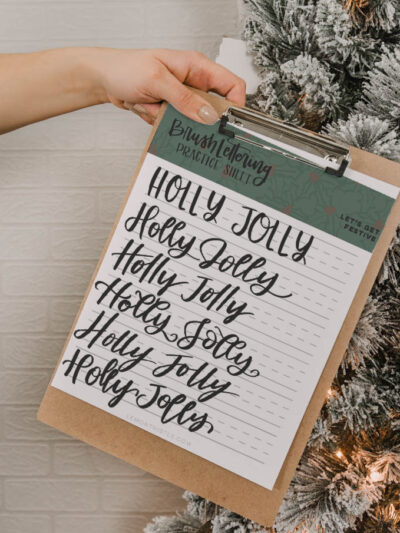 Brush Lettering
PRACTICE SHEET
LET'S GET
FESTIVE
HOLLY JOLLY
Holly Jolly
Holly Jolly
Holly Jolly
Holly Jolly
Holly Jolly
LEMONTHISTLE.COM